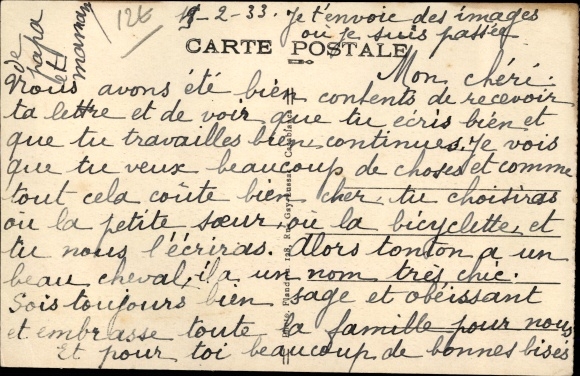 de papa
et
maman
12t
18-2-33. Je t'envoie des images
où je suis passée
CARTE POSTALE
Mon chéri.
Nous avons été bien contents de recevoir
ta lettre et de voir que tu écris bien et
que tu travailles bien continues. Je vois
que tu veux beaucoup de choses et comme
tout cela coûte bien cher, tu choisiras
où la petite sœur, où la bicyclette, et
tu nous l'écriras. Alors tonton a un
beau cheval, il a un nom très chic.
Sois toujours bien sage et obéissant
et embrasse toute la famille pour nous
Et pour toi beaucoup de bonnes bises
Flandrin, 128, Rue Gay-Lussac, Casablanca